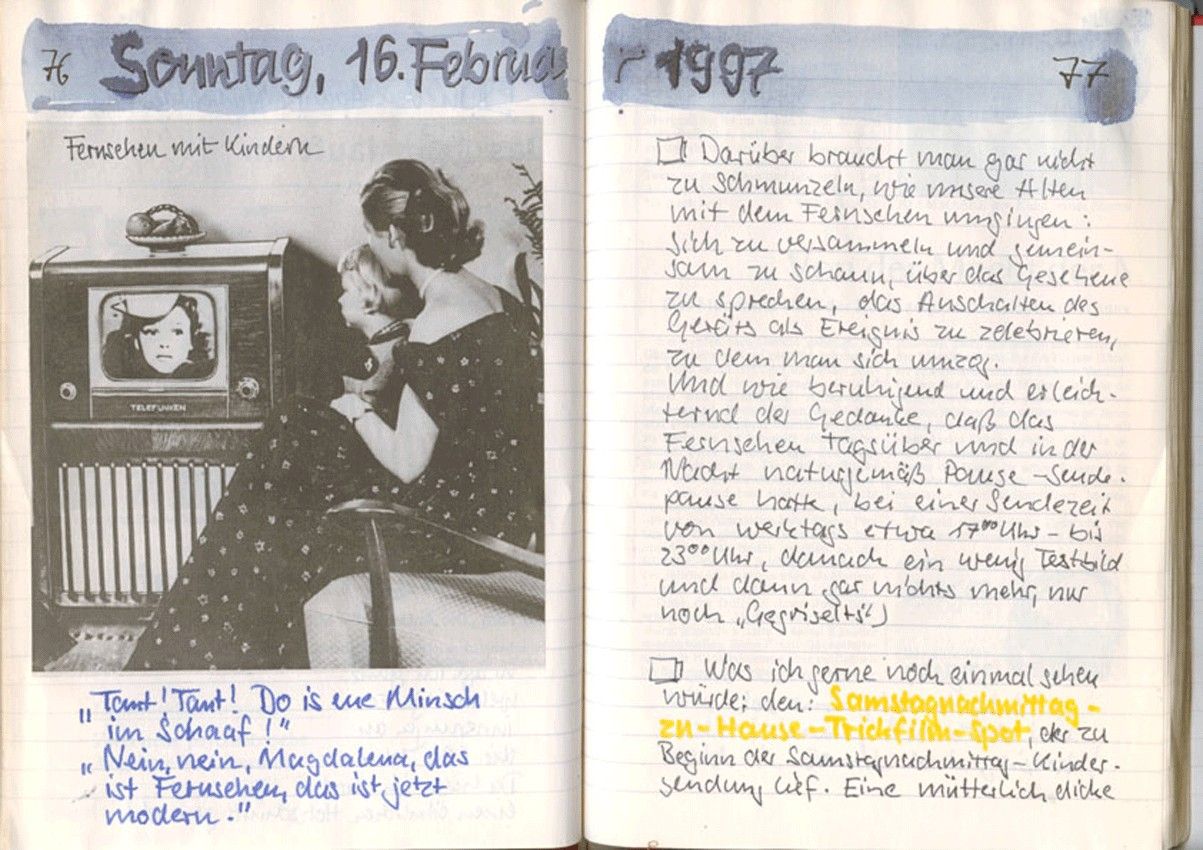 76 Sonntag, 16. Februar 1997 77
Fernsehen mit Kindern
TELEFUNKEN
"Tant! Tant! Do is ene Minsch
im Schaaf!"
"Nein, nein, Magdalena, das
ist Fernsehen, das ist jetzt
modern."
Darüber braucht man gar nicht
zu schmunzeln, wie unsere Alten
mit dem Fernsehen umgingen:
sich zu versammeln und gemein-
sam zu schaun, über das Gesehene
zu sprechen, das Anschalten des
Geräts als Ereignis zu zelebrieren,
zu dem man sich umzog.
Und wie beruhigend und erleich-
ternd der Gedanke, daß das
Fernsehen tagsüber und in der
Nacht naturgemäß Pause – Sende-
pause hatte, bei einer Sendezeit
von werktags etwa 17⁰⁰ Uhr – bis
23⁰⁰ Uhr, danach ein wenig Testbild
und dann gar nichts mehr, nur
noch „Gegriselts")
Was ich gerne noch einmal sehen
würde: den: Samstagnachmittag-
zu-Hause-Trickfilm-Spot, der zu
Beginn der Samstagnachmittag-Kinder-
sendung lief. Eine mütterlich dicke